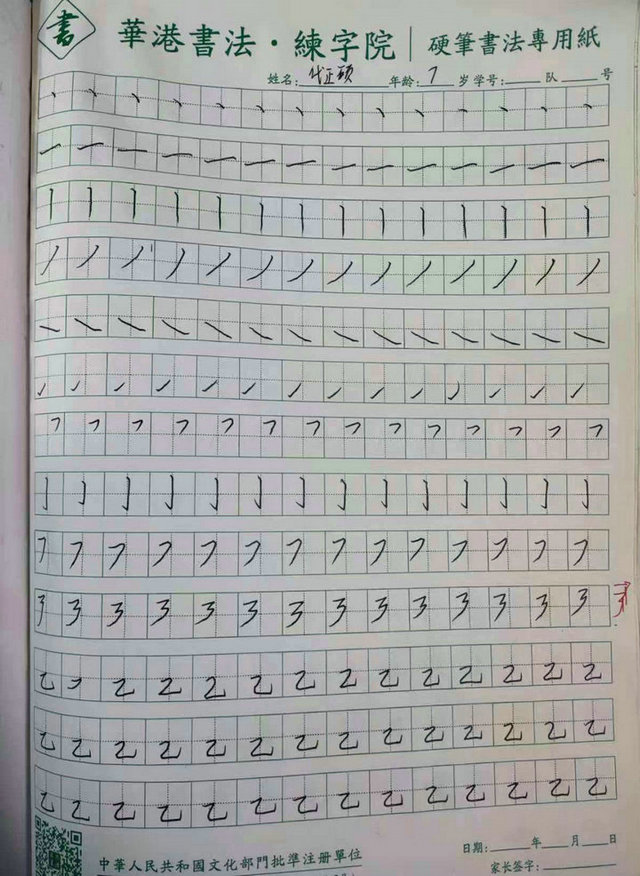 書 華港書法·練字院 | 硬筆書法專用紙
姓名:代正硕 年龄:7 岁 学号:____ 队 ____ 号
丶 丶 丶 丶 丶 丶 丶 丶 丶 丶 丶 丶 丶 丶
一 一 一 一 一 一 一 一 一 一 一 一 一 一
丨 丨 丨 丨 丨 丨 丨 丨 丨 丨 丨 丨 丨 丨
丿 丿 丿 丿 丿 丿 丿 丿 丿 丿 丿 丿 丿 丿
㇏ ㇏ ㇏ ㇏ ㇏ ㇏ ㇏ ㇏ ㇏ ㇏ ㇏ ㇏ ㇏ ㇏
㇀ ㇀ ㇀ ㇀ ㇀ ㇀ ㇀ ㇀ ㇀ ㇀ ㇀ ㇀ ㇀ ㇀
㇇ ㇇ ㇇ ㇇ ㇇ ㇇ ㇇ ㇇ ㇇ ㇇ ㇇ ㇇ ㇇ ㇇
亅 亅 亅 亅 亅 亅 亅 亅 亅 亅 亅 亅 亅 亅
㇆ ㇆ ㇆ ㇆ ㇆ ㇆ ㇆ ㇆ ㇆ ㇆ ㇆ ㇆ ㇆ ㇆
㇡ ㇡ ㇡ ㇡ ㇡ ㇡ ㇡ ㇡ ㇡ ㇡ ㇡ ㇡ ㇡ ㇡
乙 乙 乙 乙 乙 乙 乙 乙 乙 乙 乙 乙 乙
乙 乙 乙 乙 乙 乙 乙 乙 乙 乙 乙 乙 乙 乙
乙 乙 乙 乙 乙 乙 乙 乙 乙 乙 乙 乙 乙 乙
中華人民共和國文化部門批準注册單位
日期:____年____月____日
家长签字:____